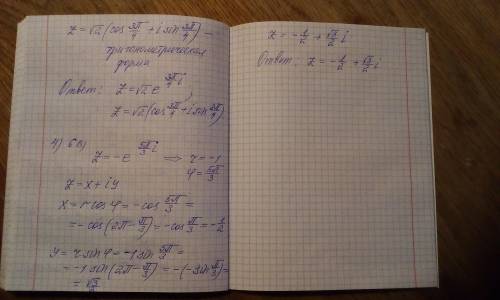 z = √2 (cos 3π/4 + i sin 3π/4) –
тригонометрическая
форма
Ответ: z = √2 e^(3π/4 i),
z = √2 (cos 3π/4 + i sin 3π/4)
4) 6в)
z = -e^(5π/3 i) ⟹ r = -1
φ = 5π/3
z = x + iy
x = r cos φ = - cos 5π/3 =
= - cos (2π - π/3) = - cos π/3 = - 1/2
y = r sin φ = -1 sin 5π/3 =
= -1 sin (2π - π/3) = -(- sin π/3) =
= √3/2
z = - 1/2 + √3/2 i
Ответ: z = - 1/2 + √3/2 i